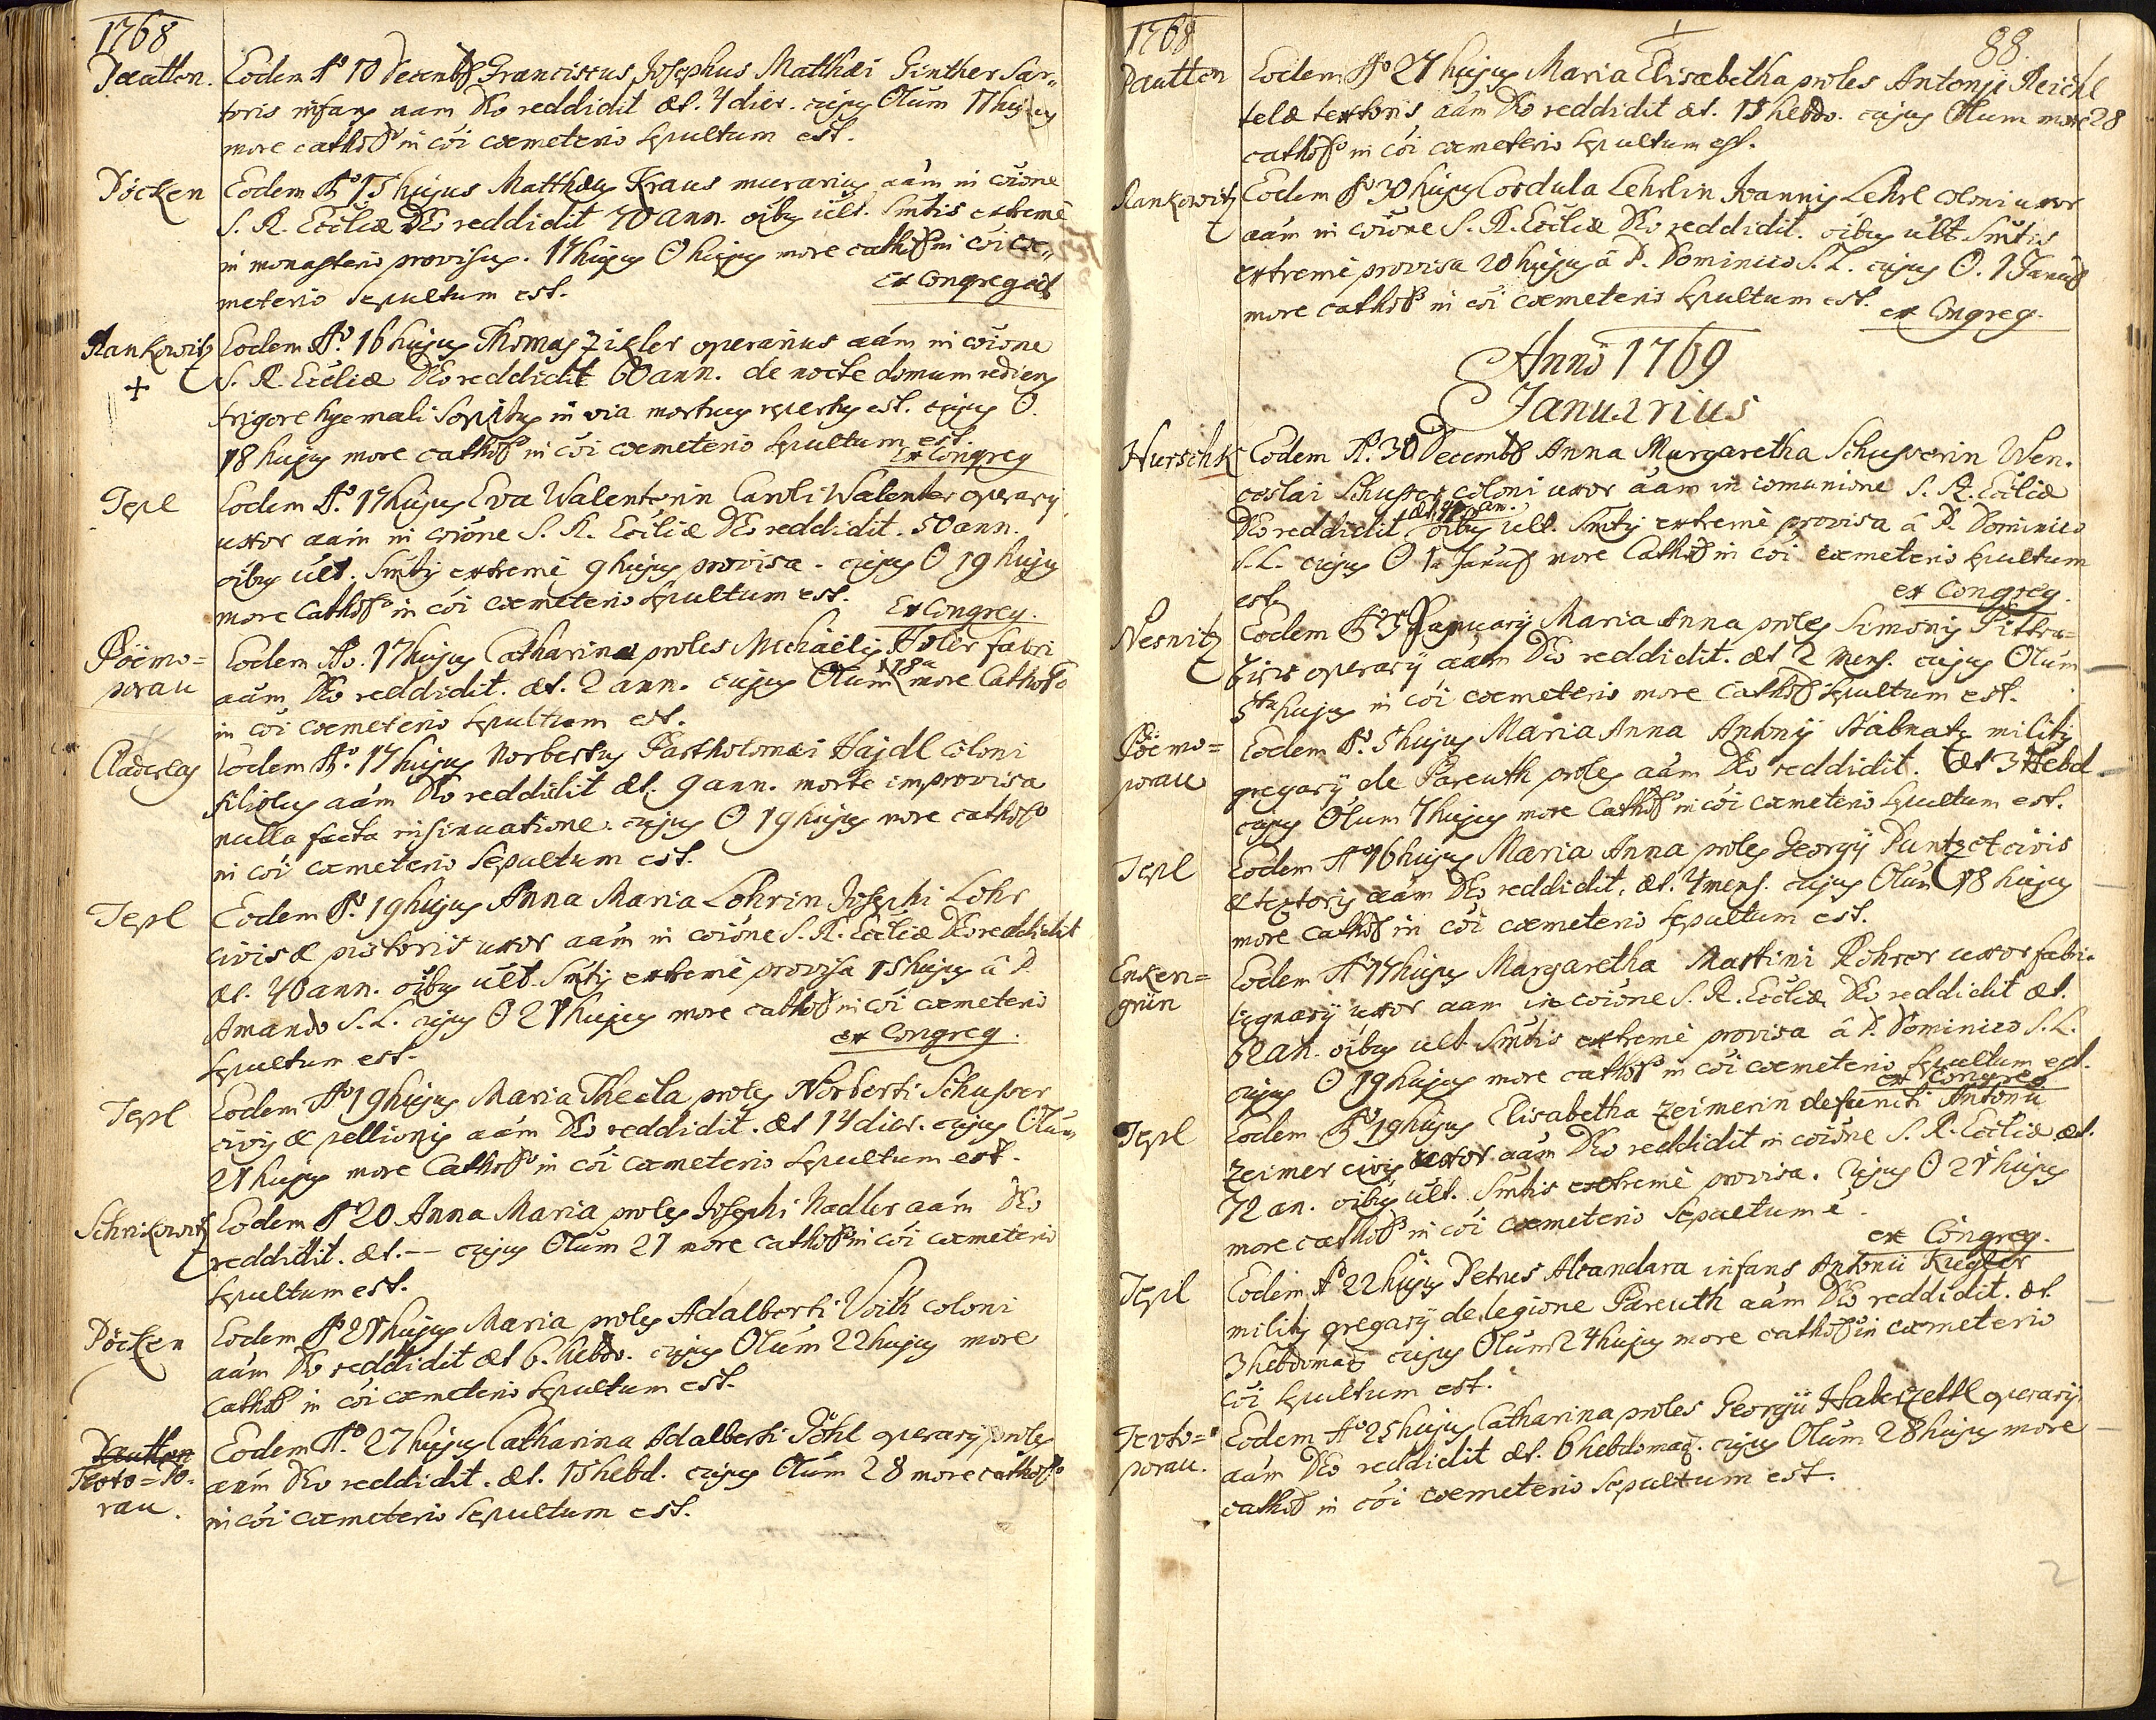 1768
Dautton. Eodem Ao 10 Decembr Franciscus Josephus Matthæi Ginther Sar-
toris infans aam Deo reddidit æt. 4 dier. cujus Olum 11 hujus
more cathol in cōi cœmeterio sepultum est.
Döcken Eodem Ao 15 hujus Matthæus Kraus murarius aám in coióne
S. R. Eccliæ Deo reddidit 70 ann. oibus ult. Smtis extremè
in monasterio provisus. 17 hujus O hujus more cathol in cōi cœ-
meterio sepultum est. Ex Congregat
Rankowitz Eodem Ao. 16 hujus Thomas Zikler operarius aám in coióne
+ S. R. Eccliæ Deo reddidit 60 ann. de nocte domum rediens
frigore hyemali sopitus in via mortuus repertus est. cujus O.
18 hujus more cathol in cōi cœmeterio sepultum est.
Ex Congreg
Tepl Eodem Ao. 17 hujus Eva Walenterin Caroli Walenter operarij
uxor aám in coióne S. R. Eccliæ Deo reddidit. 50 ann.
oibus ult. Smtis extremè 9 hujus provisa. cujus O 19 hujus
more Cathol in cōi cœmeterio sepultum est. Ex Congreg.
Böhmo= Eodem Ao. 17 hujus Catharina proles Michaëlis Holer fabri
porau aám Deo reddidit. æt. 2 ann. cujus Olum 18a more Cathol
in cōi cœmeterio sepultum est.
Eodem Ao. 17 hujus Norbertus Bartholomæi Hajdl coloni
filiolus aám Deo reddidit æt. 9 ann. morte improvisa
nulla facta insinuatione. cujus O 19 hujus more cathol
in cōi cœmeterio sepultum est.
Tepl Eodem Ao. 19 hujus Anna Maria Lohrin Josephi Lohr
civis æ pistoris uxor aám in coióne S. R. Eccliæ Deo reddidit
æt. 40 ann. oibus ult. Smtis extremè provisa 15 hujus â P.
Amando S. L. cujus O 21 hujus more cathol in cōi cœmeterio
sepultum est. ex Congreg.
Tepl Eodem Ao 19 hujus Maria Thecla proles Norberti Schusser
civis æ pellionis aám Deo reddidit. æt 14 dier. cujus Olum
21 hujus more Cathol in cōi cœmeterio sepultum est.
Schrikowitz Eodem Ao 20 Anna Maria proles Josephi Nadler aám Deo
reddidit. æt. -- cujus Olum 21 more cathol in cōi cœmeterio
sepultum est.
Döcken Eodem Ao 21 hujus Maria proles Adalberti Voith coloni
aám Deo reddidit æt 6. hebdo. cujus Olum 22 hujus more
Cathol in cōi cœmeterio sepultum est.
Dautton Eodem Ao. 27 hujus Catharina Adalberti Pöhl operarij proles
aám Deo reddidit. æt. 15 hebd. cujus Olum 28 more cathol
rau. in cōi cœmeterio sepultum est.
1768 88
Dautton Eodem Ao 27 hujus Maria Elisabetha proles Antonij Reichl
telæ textoris aám Deo reddidit æt. 15 hebdo. cujus Olum more 28
cathol in cōi cœmeterio sepultum est.
Rankowitz Eodem Ao 30 hujus Cordula Lehrlin Joannis Lehrl coloni uxor
aám in coióne S. R. Eccliæ Deo reddidit. oibus ult Smtis
extremè provisa 20 hujus â P. Dominico S. L. cujus O. 1 Januar
more cathol in cōi cœmeterio sepultum est. ex Congreg.
Anno 1769
Januarius
Hurschk Eodem Ao. 30 Decembr Anna Margaretha Schusserin Wen-
ceslai Schusser coloni uxor aám in comunione S. R. Eccliæ
Deo reddidit oibus ult. Smtis extremè provisa â P. Dominico
S. L. cujus O 1a Januar more Cathol in cōi cœmeterio sepultum
est. ex Congreg.
Nesnitz Eodem Ao 3 Januarij Maria Anna proles Simonis
operarij aám Deo reddidit. æt 2 mens. cujus Olum
5ta hujus in cōi cœmeterio more Cathol sepultum est.
Böhmo= Eodem Ao. 5 hujus Maria Anna Antonij militis
porau gregarij de Pareuth proles aám Deo reddidit. æt 3 Hebd
cujus Olum 7 hujus more Cathol in cōi cœmeterio sepultum est.
Tepl Eodem Ao 16 hujus Maria Anna proles Georgij Puntzet civis
æ textoris aám Deo reddidit. æt. 4 mens. cujus Olum 18 hujus
more Cathol in cōi cœmeterio sepultum est.
Enken= Eodem Ao 17 hujus Margaretha Martini Rohrer uxor fabri
grün lignarij uxor aam in coióne S. R. Eccliæ Deo reddidit æt.
62 an. oibus ult. Smtis extremè provisa â P. Dominico S. L.
cujus O 19 hujus more cathol in cōi cœmeterio sepultum est.
ex Congreg
Tepl Eodem Ao 19 hujus Elisabetha Zeimerin defuncti Antonii
Zeimer civis uxor aám Deo reddidit in coióne S. R. Eccliæ æt.
72 an. oibus ult. Smtis extremè provisa. cujus O 21 hujus
more cathol in cōi cœmeterio sepultum é.
ex Congreg.
Tepl Eodem Ao 22 hujus Petrus Alcandara infans Antonii Kiegler
militis gregarij de legione Pareuth aám Deo reddidit. æt
3 hebdomad cujus Olum 24 hujus more cathol in cœmeterio
cōi sepultum est.
Eodem Ao 25 hujus Catharina proles Georgii Haberzettl operarij
porau. aám Deo reddidit æt. 6 hebdomad. cujus Olum 28 hujus more
cathol in cōi cœmeterio sepultum est.
2